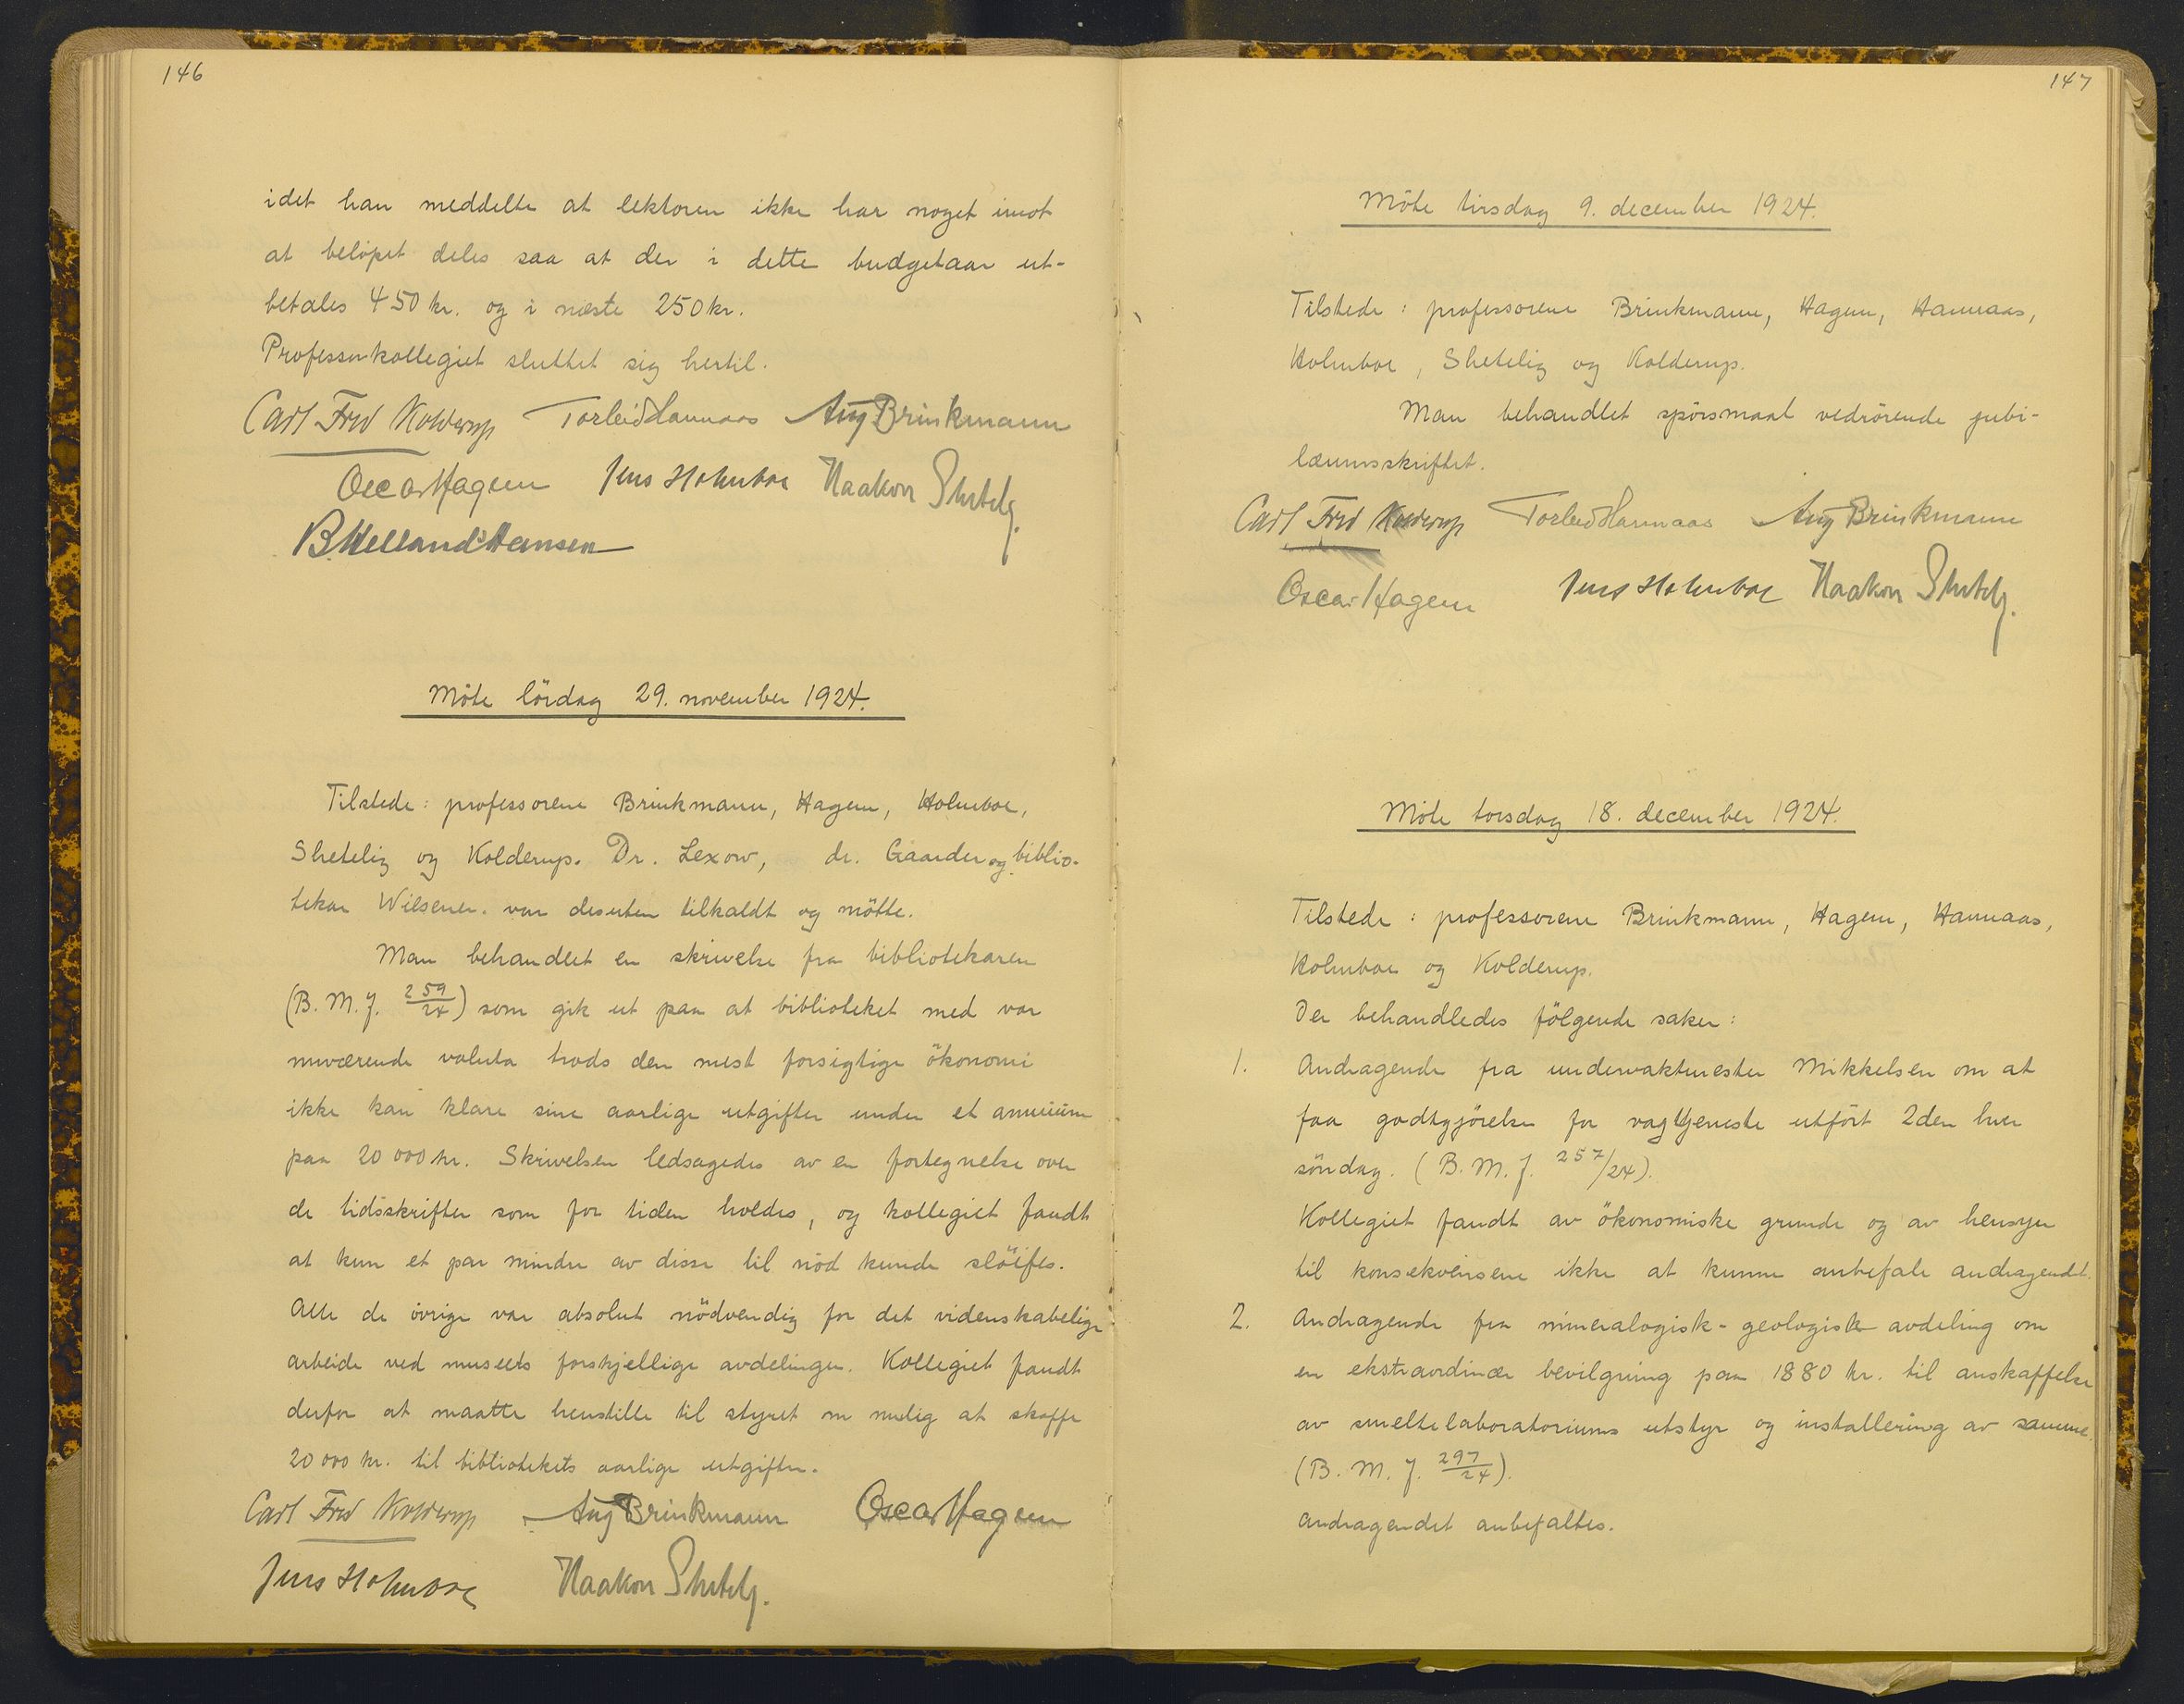 146
idet han meddelte at lektoren ikke har noget imot
at beløpet deles saa at der i dette budgetaar ut-
betales 450 kr. og i næste 250 kr.
Professorkollegiet sluttet sig hertil.
Carl Fred Kolderup Torleiv Hannaas Aug Brinkmann
Oscar Hagem Jens Holmboe Haakon Shetelig.
B Helland-Hansen
Möte lördag 29. november 1924.
Tilstede: professorene Brinkmann, Hagem, Holmboe,
Shetelig og Kolderup. Dr. Lexow, dr. Gaarder og biblio-
tekar Wiesener. var desuten tilkaldt og mötte.
Man behandlet en skrivelse fra bibliotekaren
(B. M. J. 259/24) som gik ut paa at biblioteket med vor
nuværende valuta trods den mest forsigtige ökonomi
ikke kan klare sine aarlige utgifter under et annuum
paa 20 000 kr. Skrivelsen ledsagedes av en fortegnelse over
de tidsskrifter som for tiden holdes, og kollegiet fandt
at kun et par mindre av disse til nöd kunde slöifes.
Alle de övrige var absolut nödvendig for det videnskabelige
arbeide ved museets forskjellige avdelinger. Kollegiet fandt
derfor at maatte henstille til styret om mulig at skaffe
20 000 kr. til bibliotekets aarlige utgifter.
Carl Fred Kolderup Aug Brinkmann Oscar Hagem
Jens Holmboe Haakon Shetelig.
147
Möte tirsdag 9. december 1924.
Tilstede: professorene Brinkmann, Hagem, Hannaas,
Holmboe, Shetelig og Kolderup.
Man behandlet spörsmaal vedrörende jubi-
læumsskriftet.
Carl Fred Kolderup Torleiv Hannaas Aug Brinkmann
Oscar Hagem Jens Holmboe Haakon Shetelig.
Möte torsdag 18. december 1924.
Tilstede: professorene Brinkmann, Hagem, Hannaas,
Holmboe og Kolderup.
Der behandledes fölgende saker:
1. Andragende fra undervaktmester Mikkelsen om at
faa godtgjörelse for vagttjeneste utfört 2den hver
söndag. (B. M. J. 257/24).
Kollegiet fandt av ökonomiske grunde og av hensyn
til konsekvensene ikke at kunne anbefale andragendet.
2. Andragende fra mineralogisk-geologisk avdeling om
en ekstraordinær bevilgning paa 1880 kr. til anskaffelse
av smeltelaboratoriums utstyr og installering av samme.
(B. M. J. 297/24).
Andragendet anbefaltes.